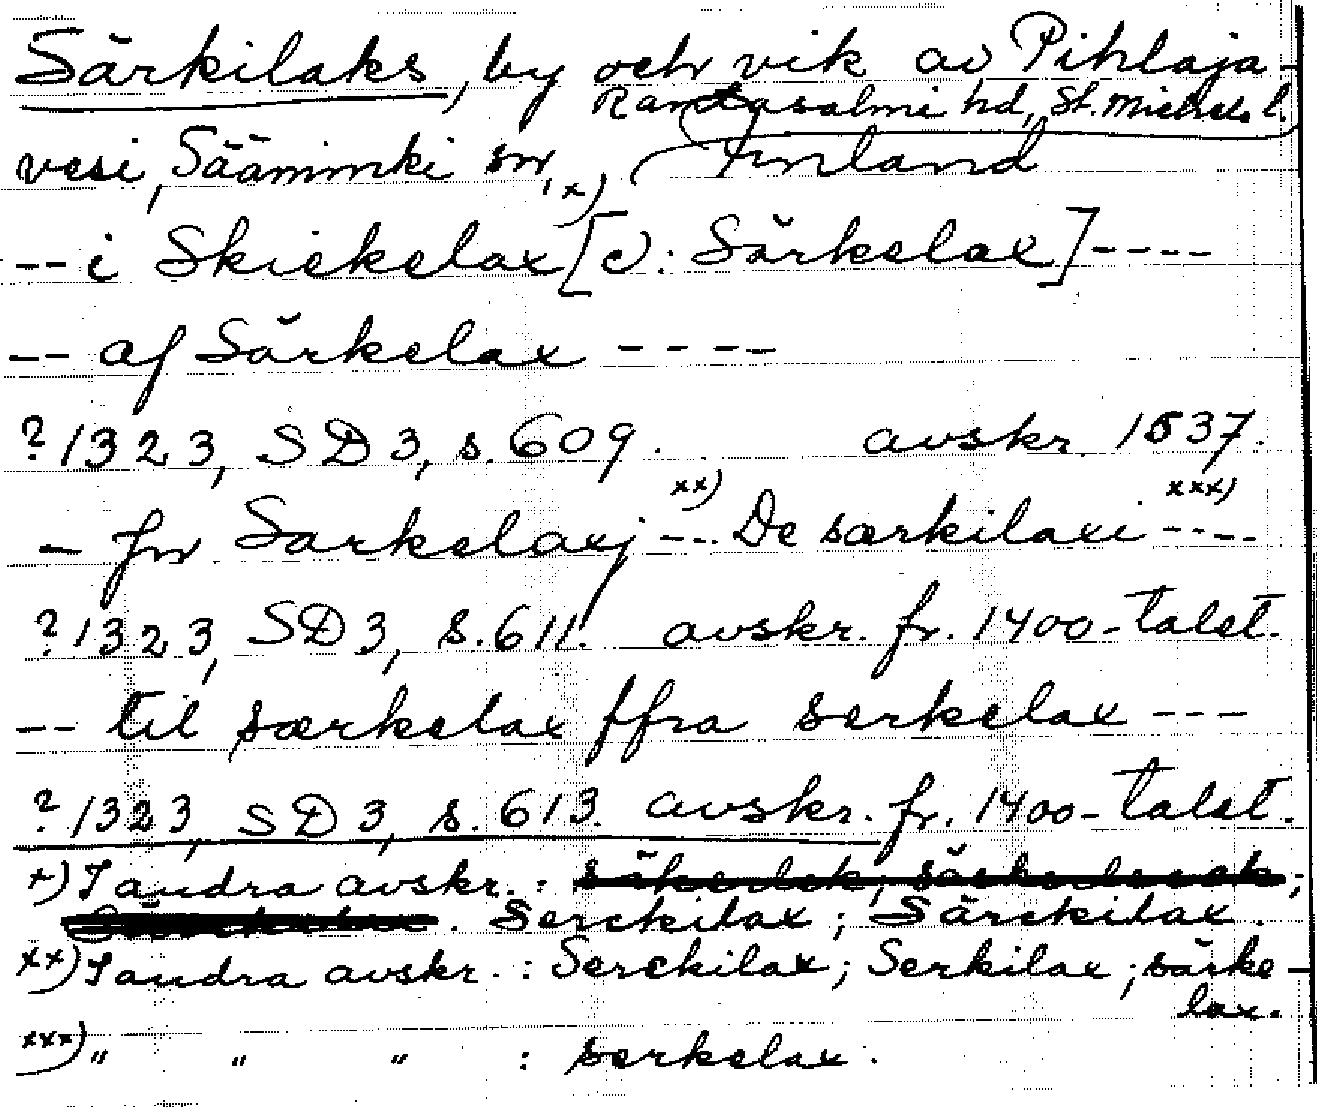 Särkilaks, by och vik av Pihlaja-
Rantasalmi hd, St. Michels l.
vesi, Sääminki sn, x) Finland
-- i Skiekelax [ɔ: Särkelax] ----
-- af Särkelax ----
? 1323, SD 3, s. 609. avskr. 1537.
- fm Sarkelaxj xx) --- De særkilaxi xxx) ----
? 1323, SD 3, s. 611. avskr. fr. 1400-talet.
-- til særkelax ffra serkelax ---
? 1323, SD 3, s. 613. avskr. fr. 1400-talet.
x) I andra avskr. : ;
. Serckilax ; Särckilax .
xx) I andra avskr. : Serckilax ; Serkilax ; särke-
lax.
xxx) " " " : serkelax .